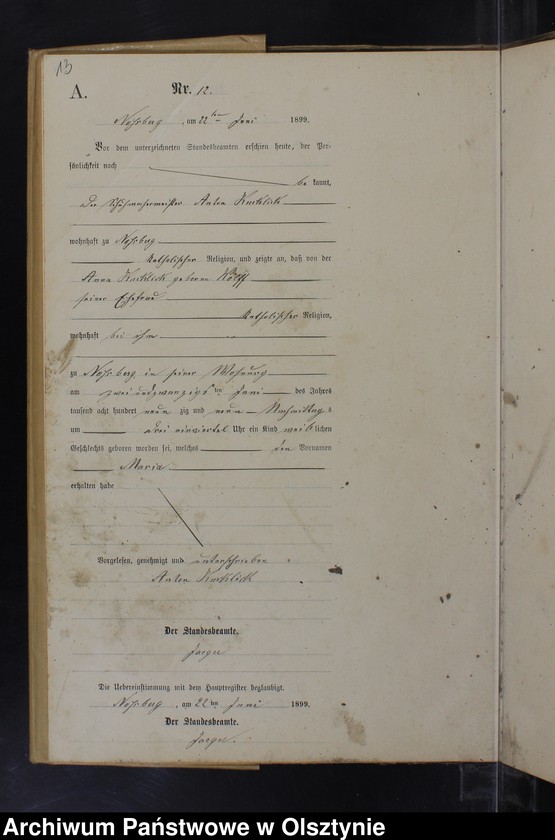 13
A.
Nr. 12.
Noßberg, am 22ten Juni 1899.
Vor dem unterzeichneten Standesbeamten erschien heute, der Per-
sönlichkeit nach
be kannt,
der Schuhmachermeister Anton Kucklick
wohnhaft zu Noßberg
katholischer Religion, und zeigte an, daß von der
Anna Kucklick geborene
seiner Ehefrau
katholischer Religion,
wohnhaft bei ihm
zu Noßberg in seiner Wohnung
am zweiundzwanzigsten Juni des Jahres
tausend acht hundert neun zig und neun Nachmittags
um drei einviertel Uhr ein Kind weiblichen
Geschlechts geboren worden sei, welches den Vornamen
Maria
erhalten habe
Vorgelesen, genehmigt und unterschrieben
Anton Kucklick
Der Standesbeamte.
Jaeger
Die Uebereinstimmung mit dem Hauptregister beglaubigt.
Noßberg, am 22ten Juni 1899.
Der Standesbeamte.
Jaeger.
Archiwum Państwowe w Olsztynie